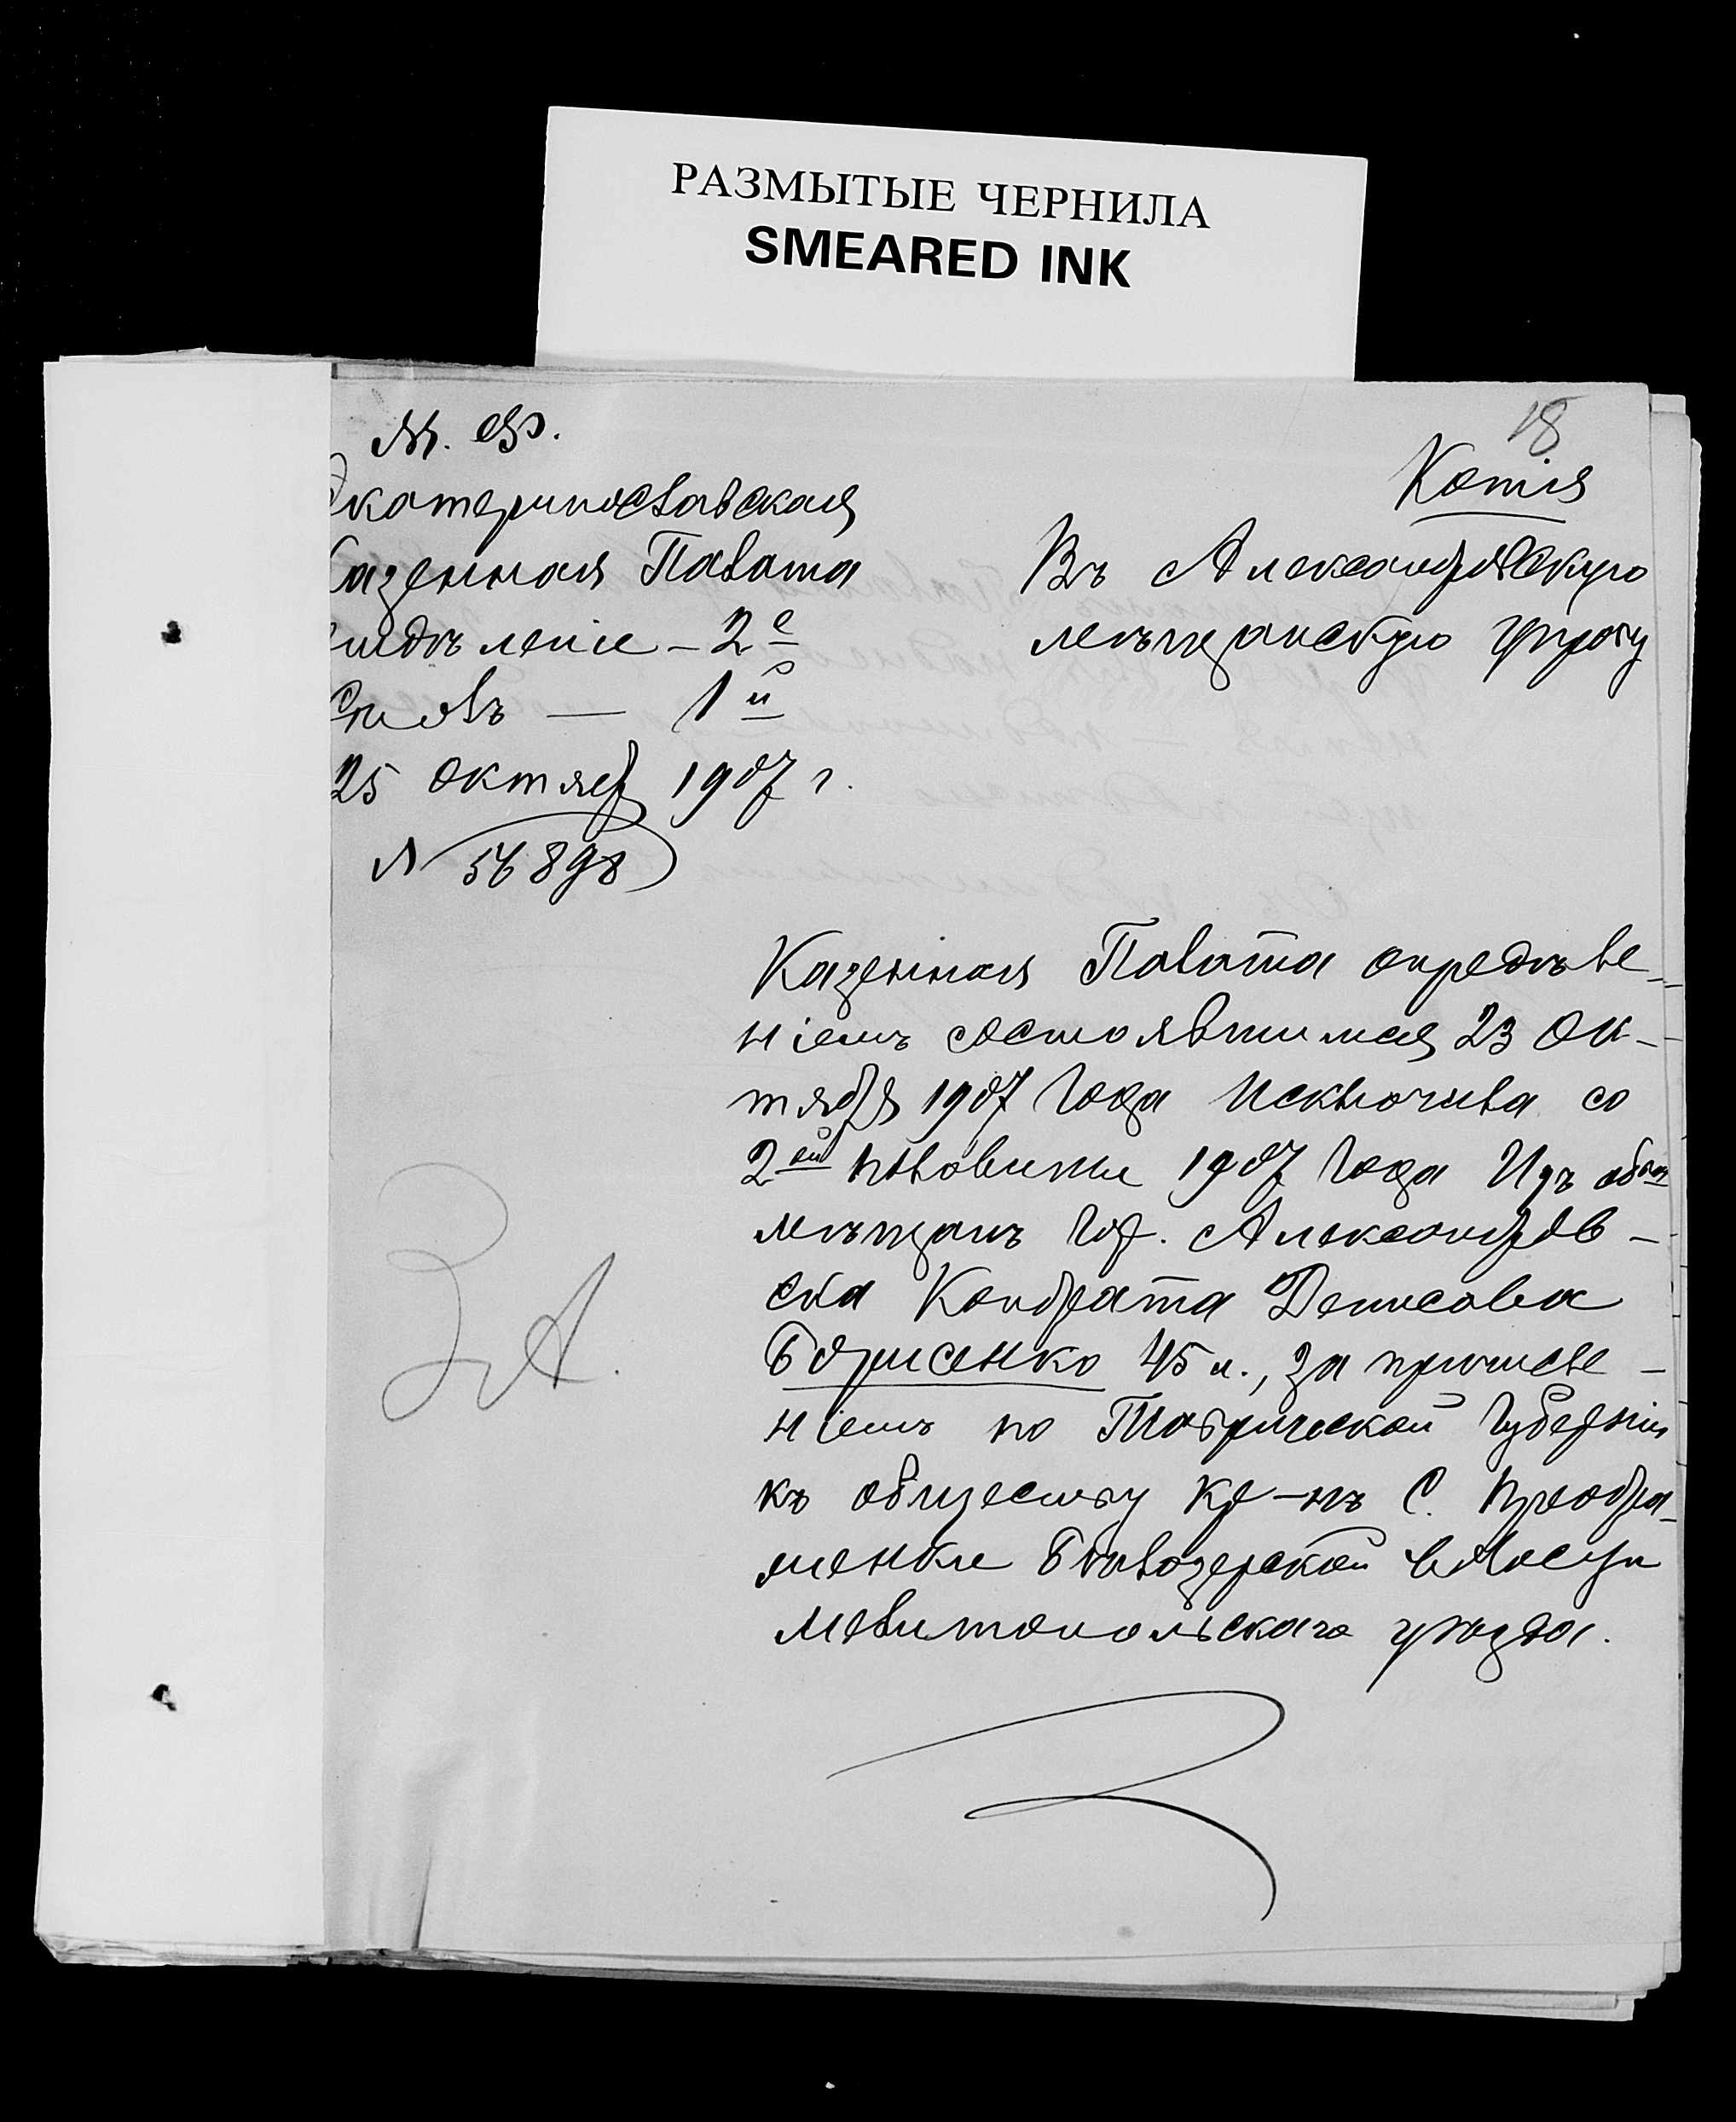 РАЗМЫТЫЕ ЧЕРНИЛА
SMEARED INK
18
М. Ф.
Копія
Екатеринославская
Казенная Палата
Отдѣленіе – 2е
Столъ — 1й
25 Октяб 1907 г.
№ 56898
Въ Александровскую
мѣщанскую Управу
Казенная Палата опредѣле-
ніемъ состоявшимся 23 Ок-
тября 1907 года исключила со
2ой половины 1907 года изъ общ
мѣщанъ гор. Александров-
ска Кондрата Денисова
Борисенко 45 л., за причисле-
ніемъ по Таврической Губерніи
къ обществу кр-нъ С. Преобра-
женки Балвозерской волости
Мелитопольскаго уѣзда.